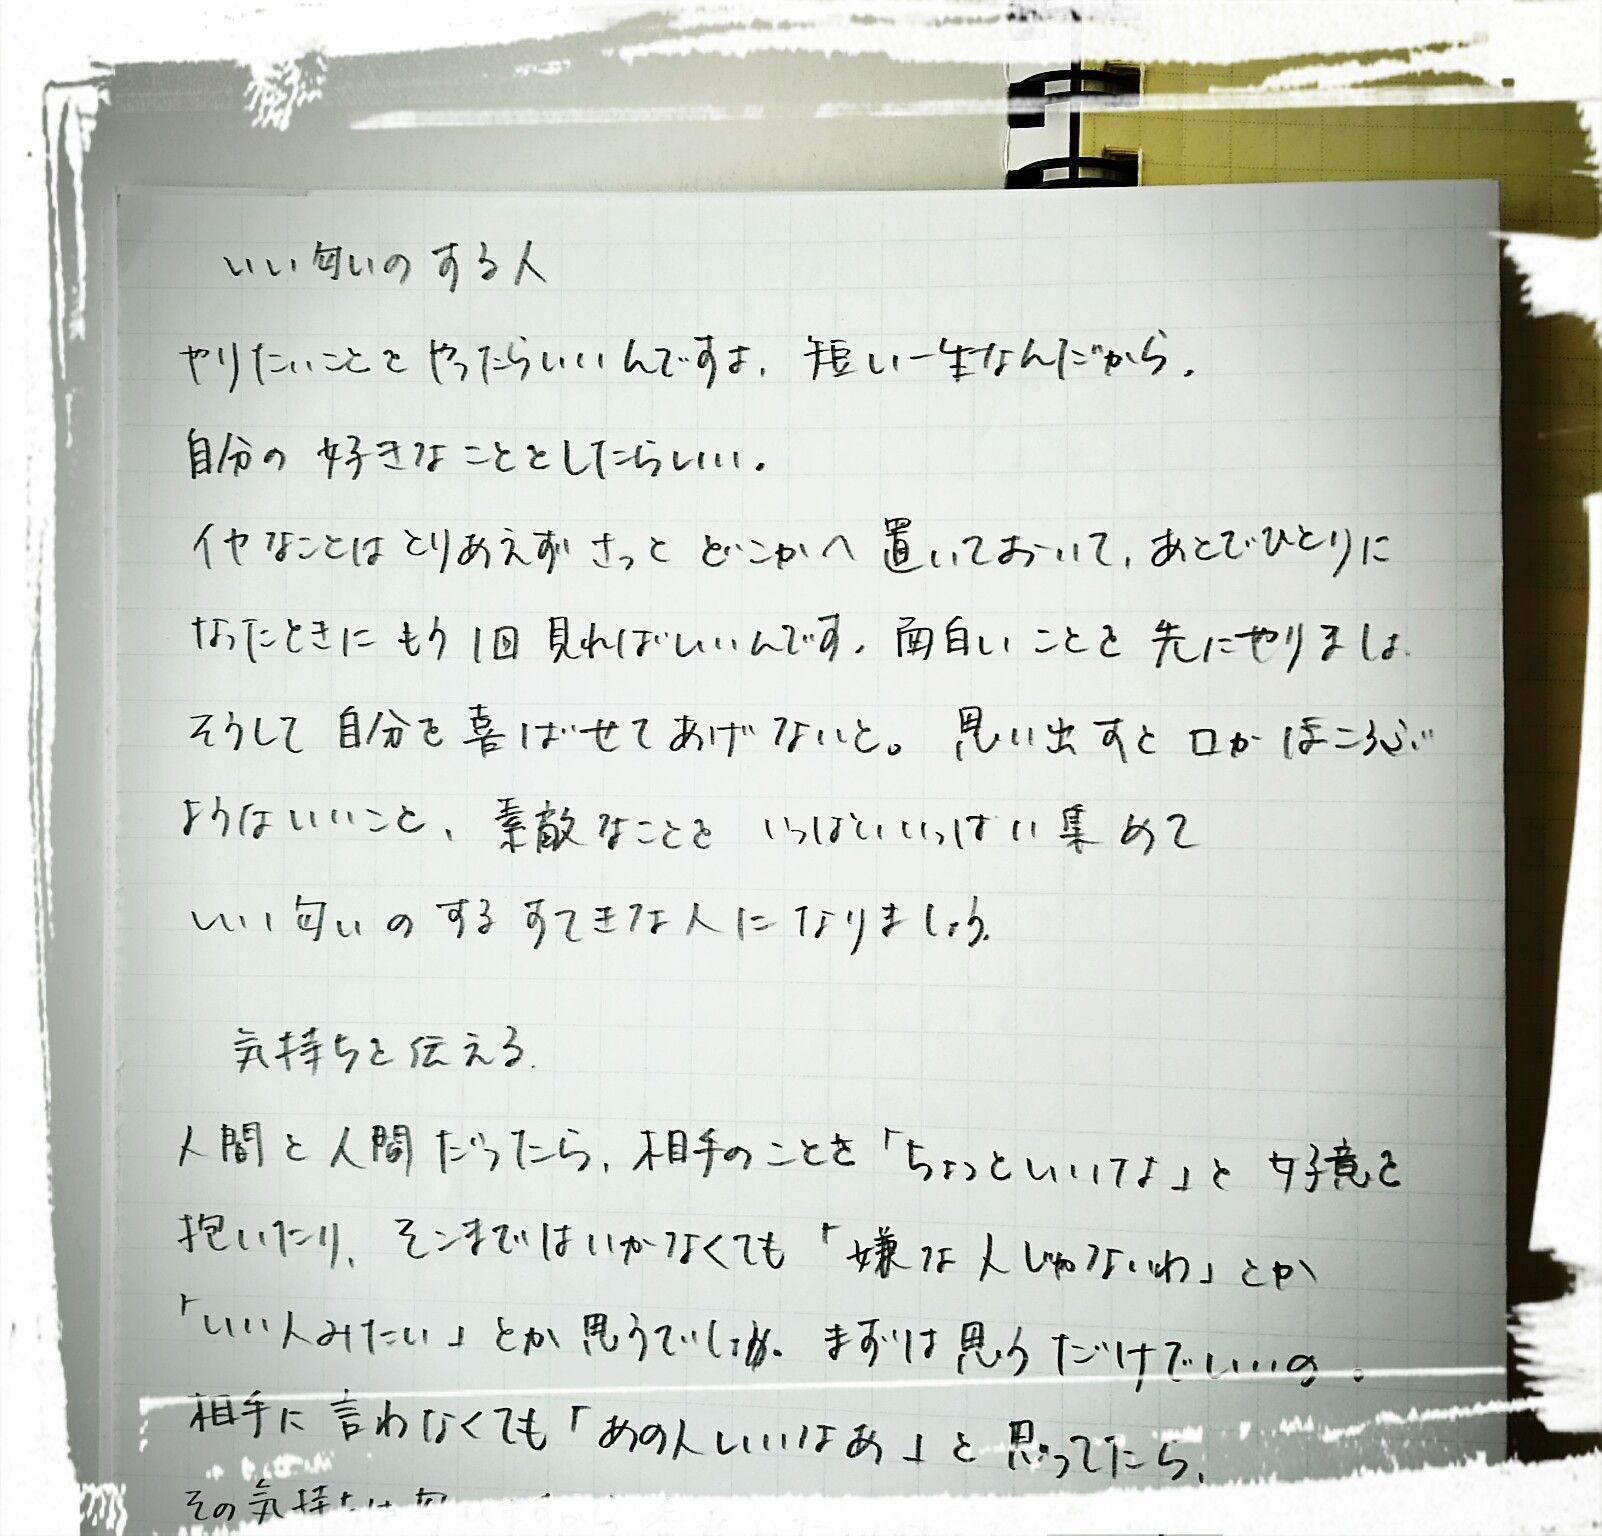 いい匂いのする人
やりたいことをやったらいいんですよ、短い一生なんだから。
自分の好きなことをしたらいい。
イヤなことはとりあえずさっとどこかへ置いておいて、あとでひとりに
なったときにもう1回見ればいいんです。面白いことを先にやりましょ
そうして自分を喜ばせてあげないと。思い出すと口がほころぶ
ようないいこと、素敵なことをいっぱいいっぱい集めて
いい匂いのするすてきな人になりましょう。
気持ちを伝える。
人間と人間だったら、相手のことを「ちょっといいな」と好意を
抱いたり、そこまではいかなくても「嫌な人じゃないわ」とか
「いい人みたい」とか思うでしょ。まずは思うだけでいいの。
相手に言わなくても「あの人いいなあ」と思ってたら、
その気持ちは